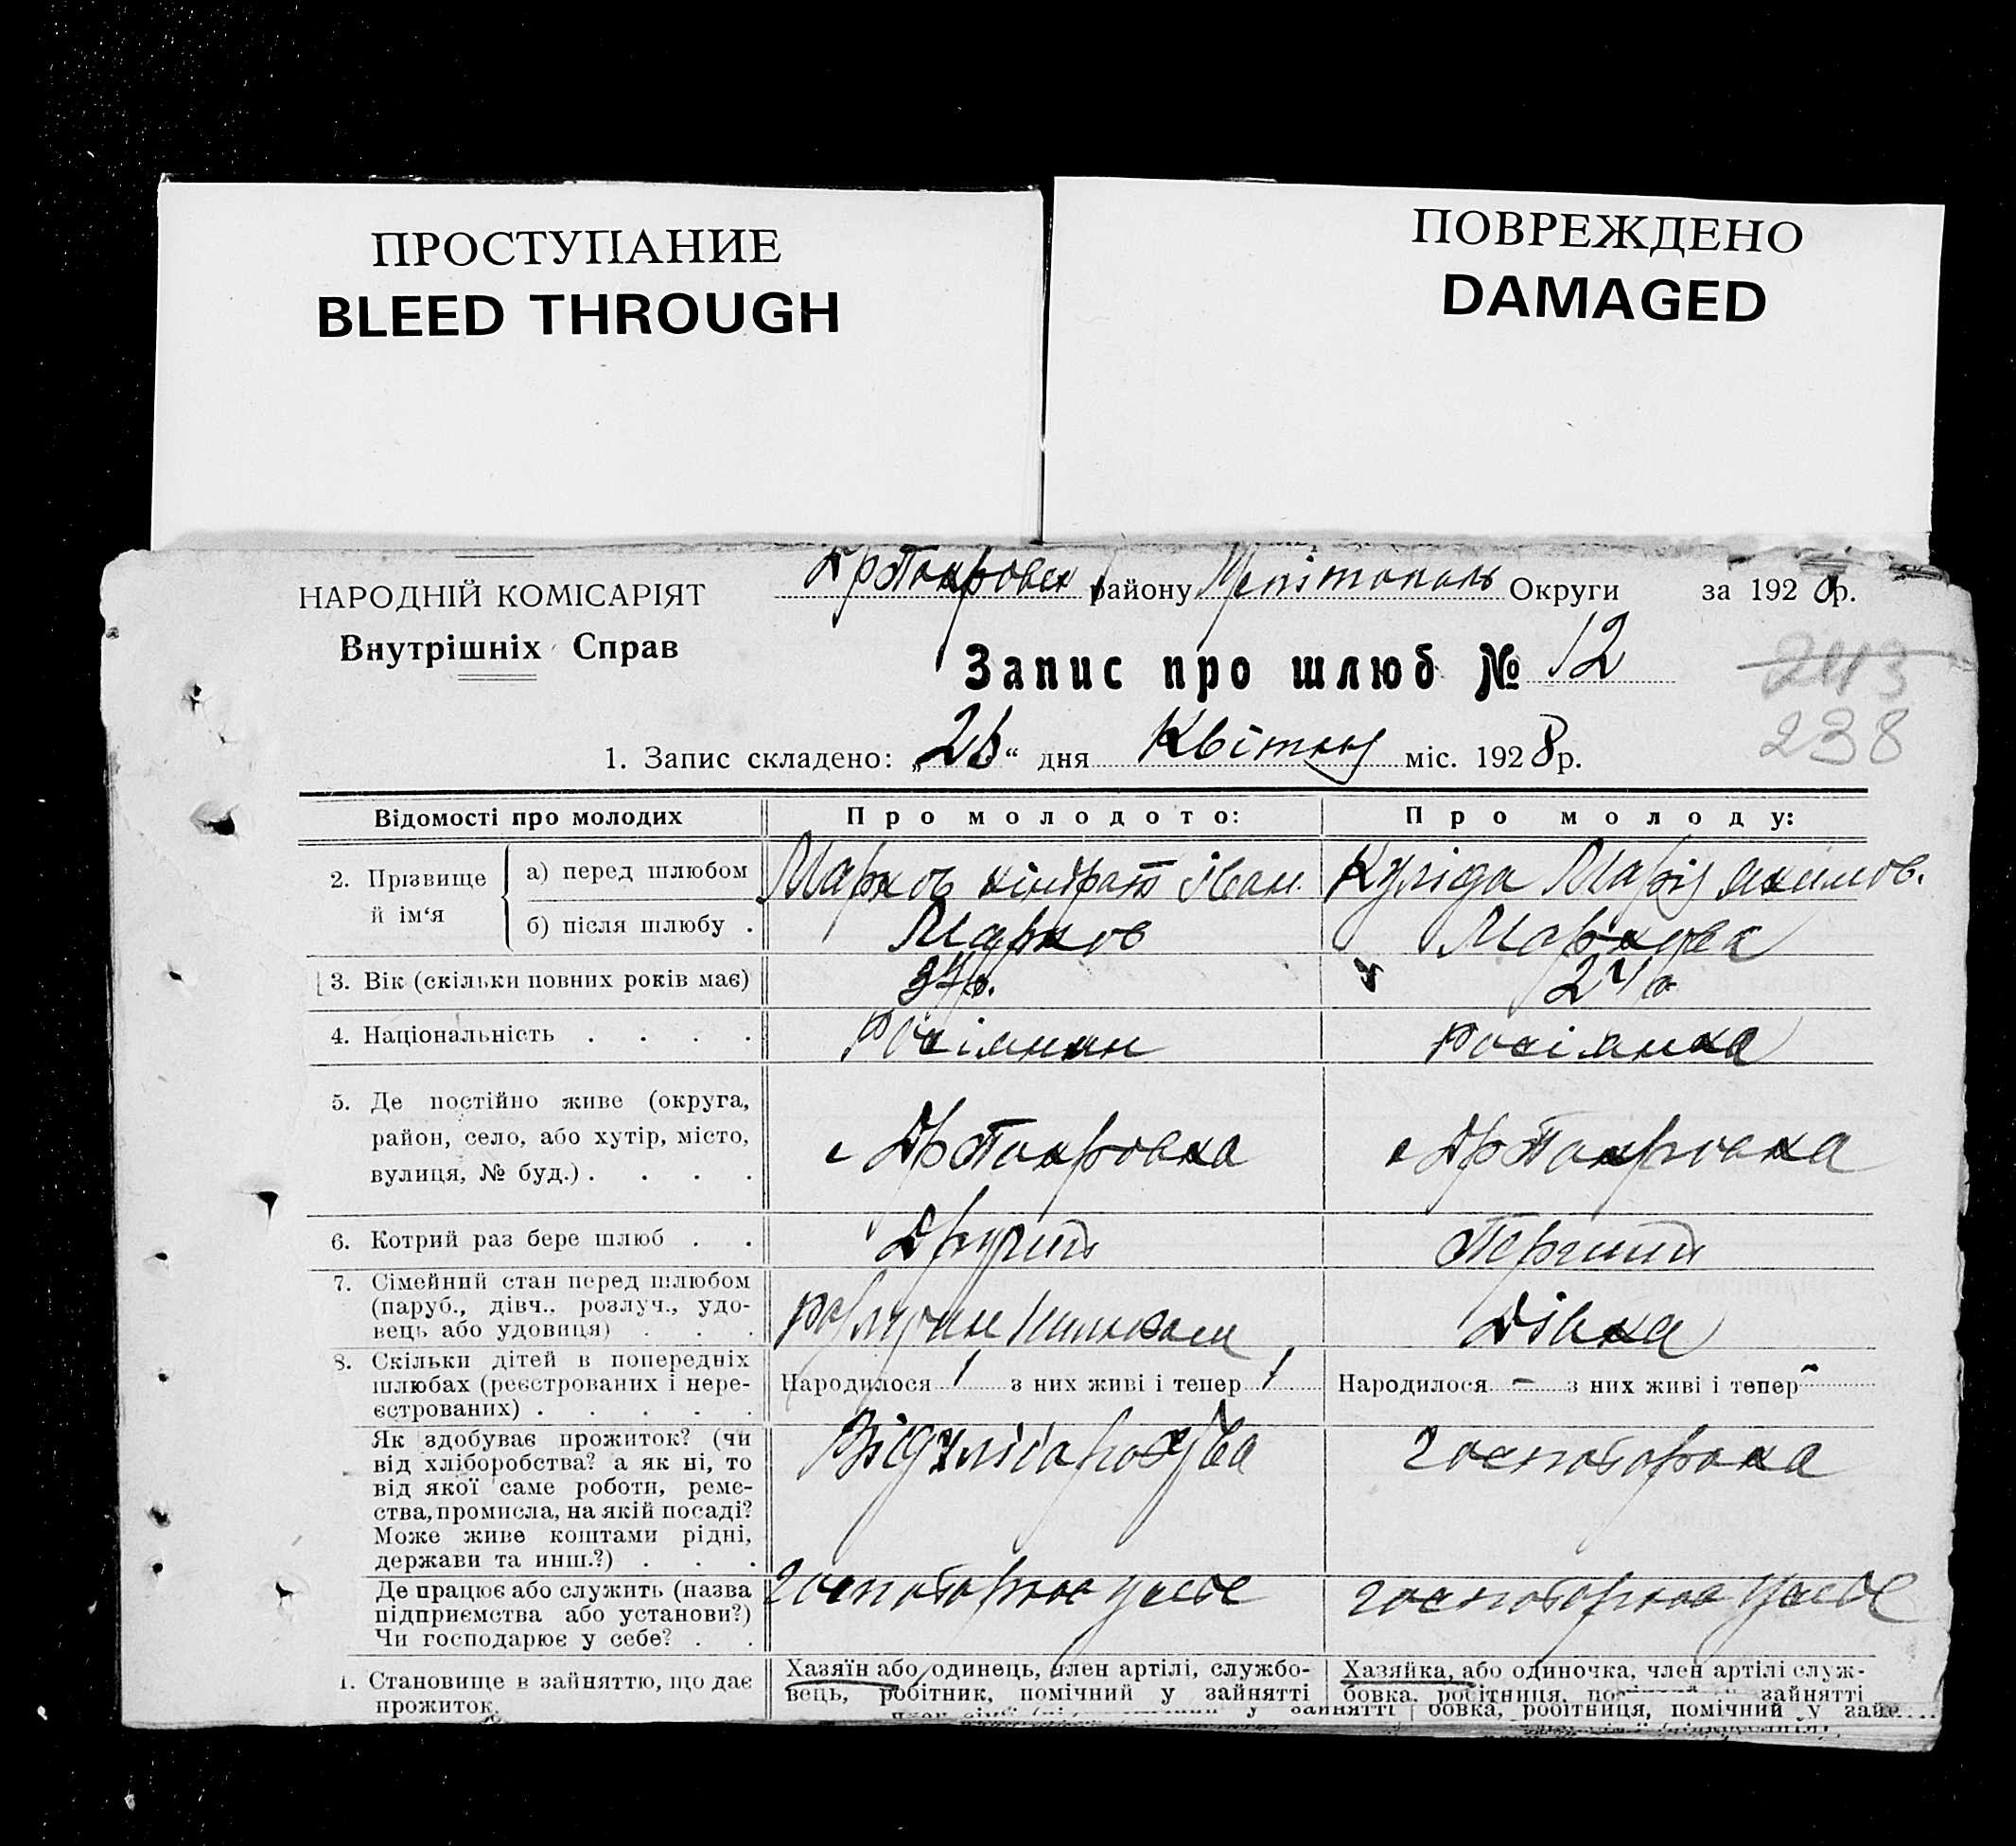 ПРОСТУПАНИЕ
BLEED THROUGH
ПОВРЕЖДЕНО
DAMAGED
НАРОДНІЙ КОМІСАРІЯТ
Внутрішніх Справ
району Округи за 1928р.
Запис про шлюб № 12
243
238
1. Запис складено: „26“ дня Квітня міс. 1928р.
Відомості про молодих Про молодого: Про молоду:
2. Прізвище й ім‘я
а) перед шлюбом Марков кіндрат іван. Куліда Марія якимов.
б) після шлюбу . Марков Маркова
3. Вік (скільки повних років має) 24р
4. Національність . . . . Росіянин росіянка
5. Де постійно живе (округа,
район, село, або хутір, місто, с Др Покровка с Др Покровка
вулиця, № буд.) . . . .
6. Котрий раз бере шлюб . . Другий Перший
7. Сімейний стан перед шлюбом
(паруб., дівч., розлуч., удо-
вець або удовиця) . . . Дівка
8. Скільки дітей в попередніх
шлюбах (реєстрованих і нере-
єстрованих) . . . . .
Народилося 1 з них живі і тепер 1 Народилося - з них живі і тепер -
Як здобуває прожиток? (чи
від хліборобства? а як ні, то
від якої саме роботи, реме-
ства, промисла, на якій посаді?
Може живе коштами рідні,
держави та инш.?) . . .
Де працює або служить (назва
підприємства або установи?)
Чи господарює у себе? . .
Становище в зайняттю, що дає
прожиток.
Хазяїн або одинець, член артілі, службо-
вець, робітник, помічний у зайнятті
Хазяйка, або одиночка, член артілі служ-
бовка, робітниця, зайнятті
бовка, робітниця, помічний у